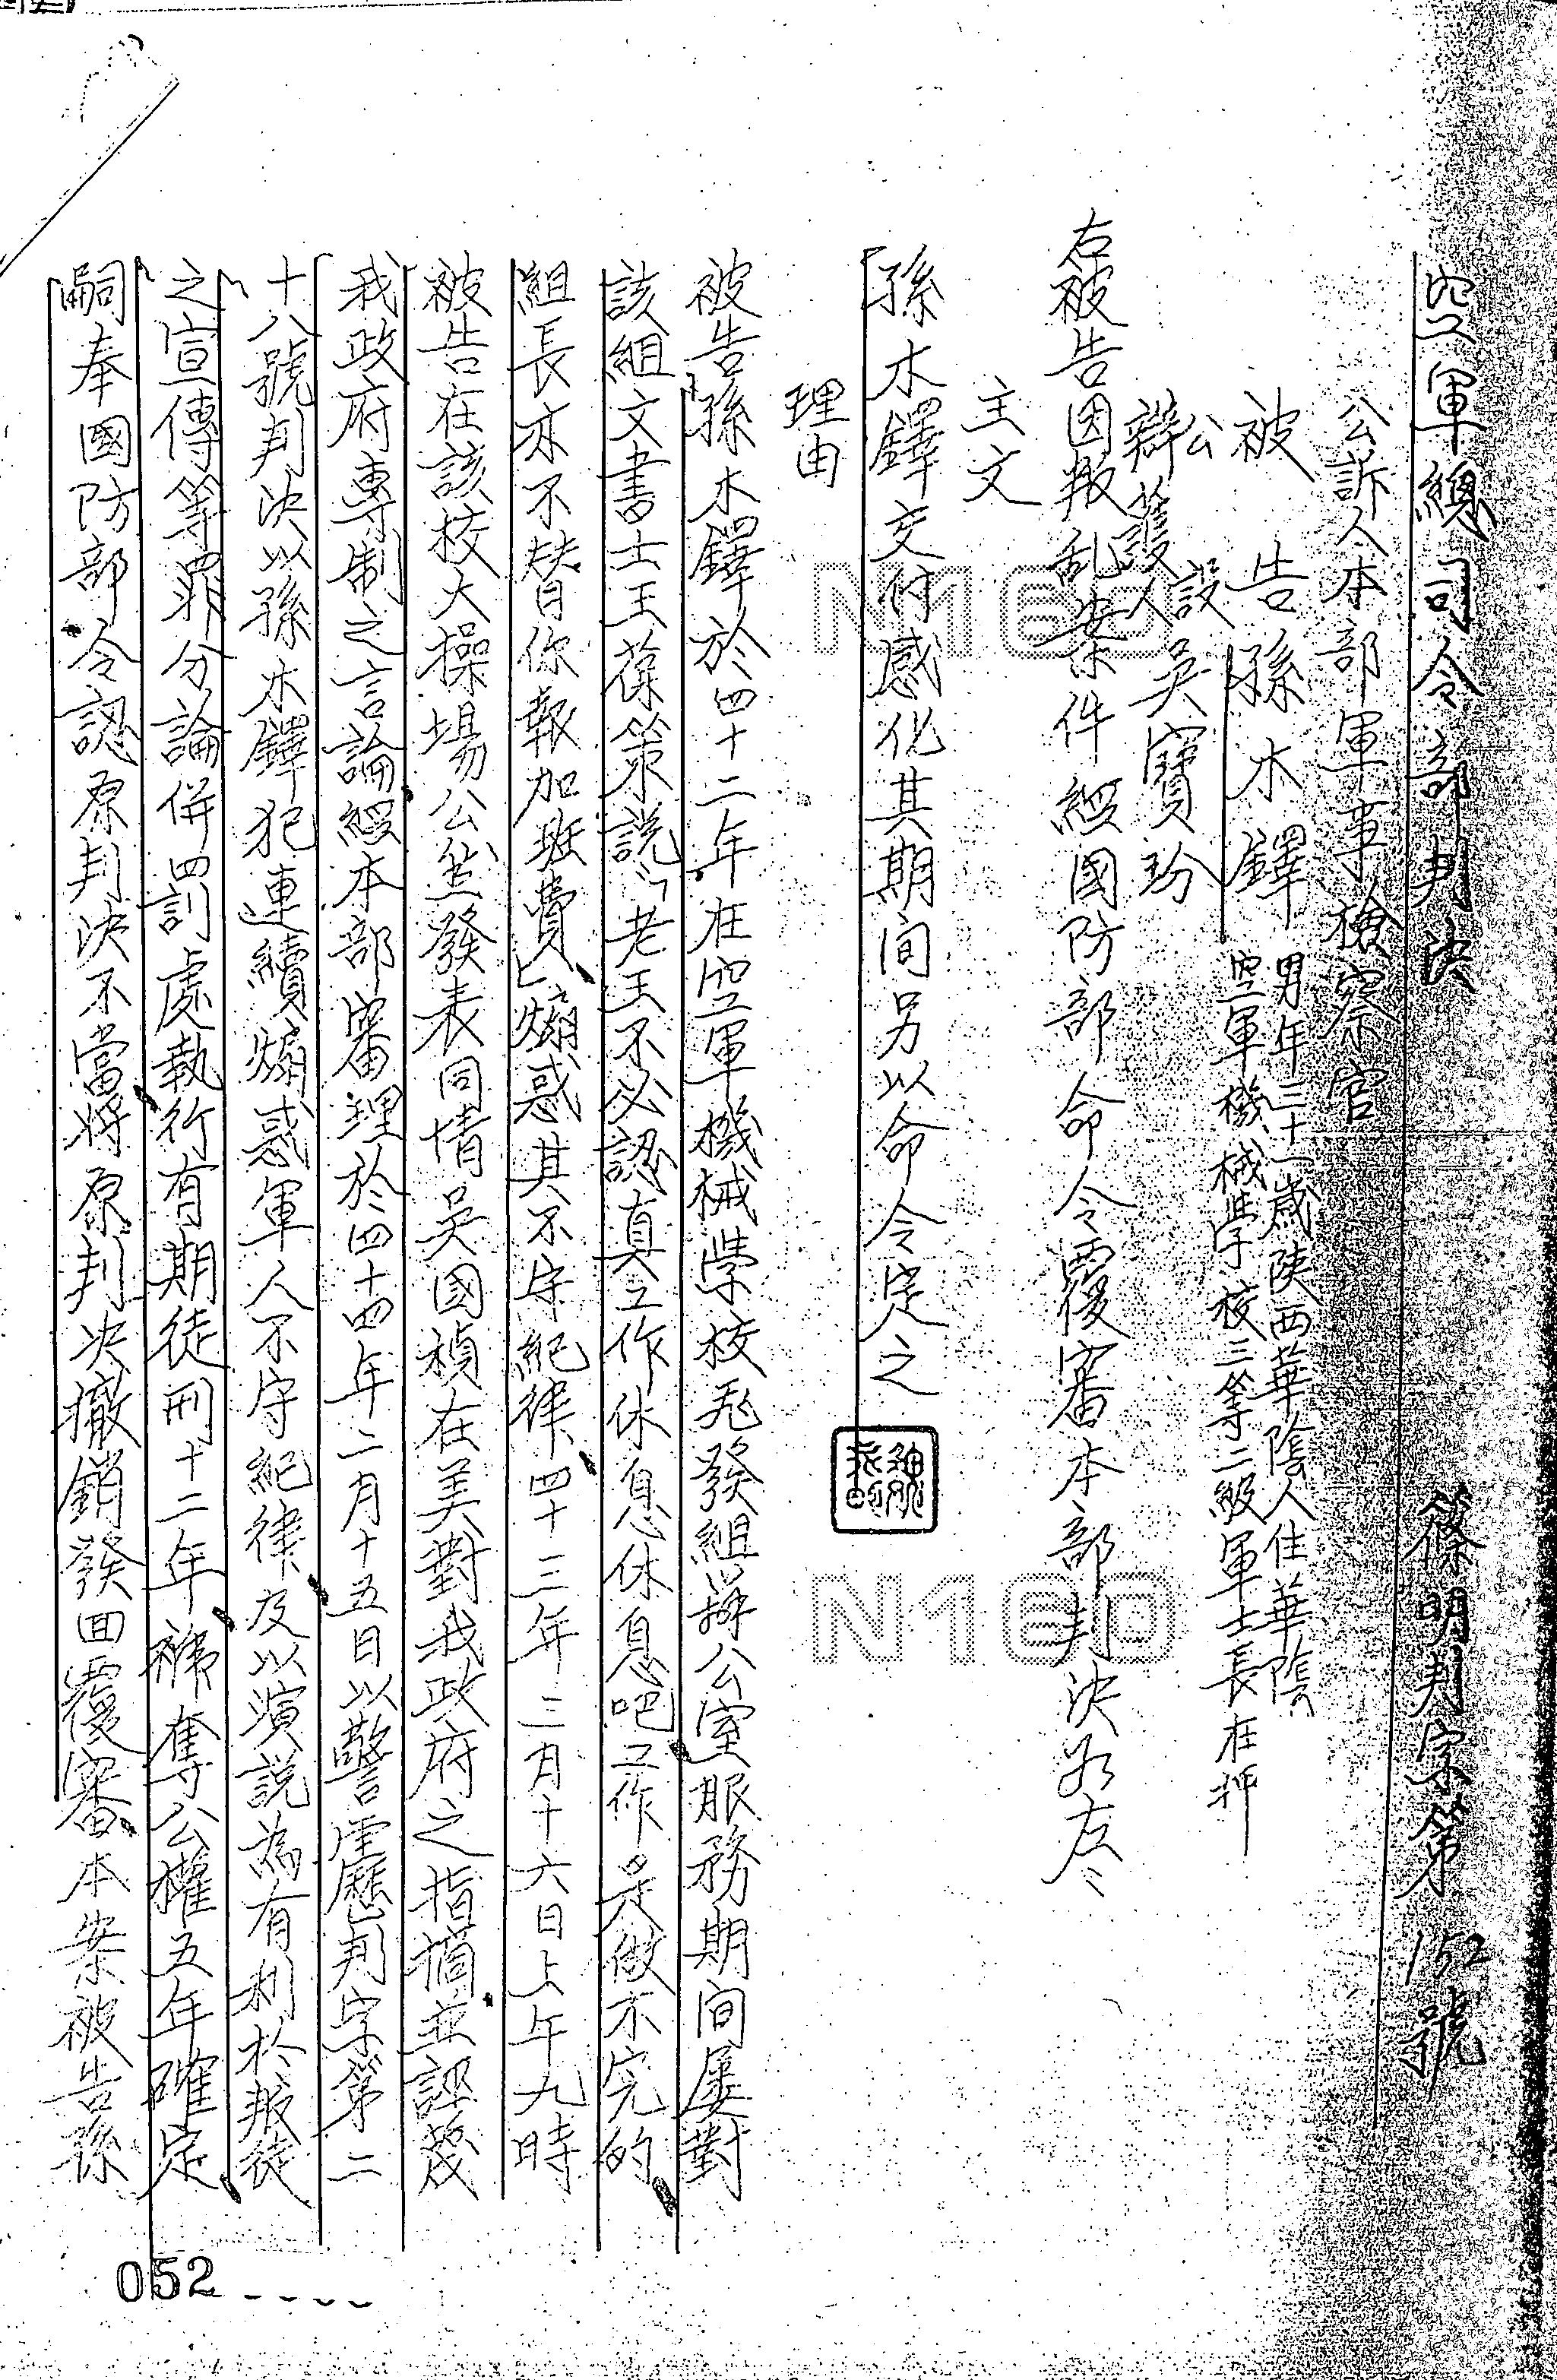 空軍總司令部判決 篠明判字第152號
公訴人本部軍事檢察官
被告孫木鐸 男年三十一歲陝西華陰人住華陰
空軍機械学校三等二級軍士長在押
公設
辯護人吳寶玢
右被告因叛乱案件經國防部命令覆審本部判決如左：
主文
孫木鐸交付感化其期间另以命令定之
理由
被告孫木鐸於四十二年在空軍機械学校飛發組辦公室服務期间屡對
該組文書士王葆策説「老王不必認真工作休息休息吧工作是做不完的
組長亦不替你報加班費」煽惑其不守紀律四十三年三月十六日上午九時
被告在該校大操場公然發表同情吳國禎在美對我政府之指摘並誣蔑
我政府專制之言論經本部審理於四十四年二月十五日以警霆歷判字第二
十八號判決以孫木鐸犯連續煽惑軍人不守紀律及以演説為有利於叛徒
之宣傳等罪分論併罰處執行有期徒刑十二年褫奪公權五年確定
嗣奉國防部令認原判決不當將原判決撤銷發回覆審本案被告孫
N160
N160
052